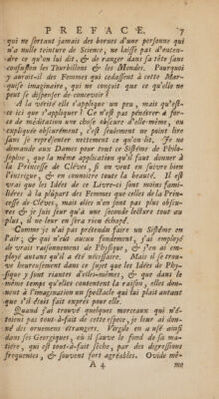 PREFACE. 7
qui ne sortant jamais des bornes d'une personne qui
n'a nulle teinture de Science, ne laisse pas d'enten-
dre ce qu'on lui dit, & de ranger dans sa tête sans
confusion les Tourbillons & les Mondes. Pourquoi
y auroit-il des Femmes qui cedassent à cette Mar-
quise imaginaire, qui ne conçoit que ce qu'elle ne
peut se dispenser de concevoir?
A la vérité elle s'applique un peu, mais qu'est-
ce ici que s'appliquer? Ce n'est pas pénétrer à for-
ce de méditation une chose obscure d'elle-même, ou
expliquée obscurément, c'est seulement ne point lire
sans se représenter nettement ce qu'on lit. Je ne
demande aux Dames pour tout ce Sistême de Philo-
sophie, que la même application qu'il faut donner à
la Princesse de Clèves, si on veut en suivre bien
l'intrigue, & en connoitre toute la beauté. Il est
vrai que les Idées de ce Livre-ci sont moins fami-
lières à la plûpart des Femmes que celles de la Prin-
cesse de Clèves, mais elles n'en sont pas plus obscu-
res & je suis sûr qu'à une seconde lecture tout au
plus, il ne leur en sera rien échapé.
Comme je n'ai pas prétendu faire un Sistême en
l'air, & qui n'eût aucun fondement, j'ai employé
de vrais raisonnemens de Physique, & j'en ai em-
ployé autant qu'il a été nécessaire. Mais il se trou-
ve heureusement dans ce sujet que les Idées de Phy-
sique y sont riantes d'elles-mêmes, & que dans le
même temps qu'elles contentent la raison, elles don-
nent à l'imagination un spectacle qui lui plait autant
que s'il étoit fait exprès pour elle.
Quand j'ai trouvé quelques morceaux qui n'é-
toient pas tout-à-fait de cette espece, je leur ai don-
né des ornemens étrangers. Virgile en a usé ainsi
dans ses Georgiques, où il sauve le fond de sa ma-
tière, qui est tout-à-fait sèche, par des digressions
frequentes, & souvent fort agréables. Ovide mê-
A 4 me